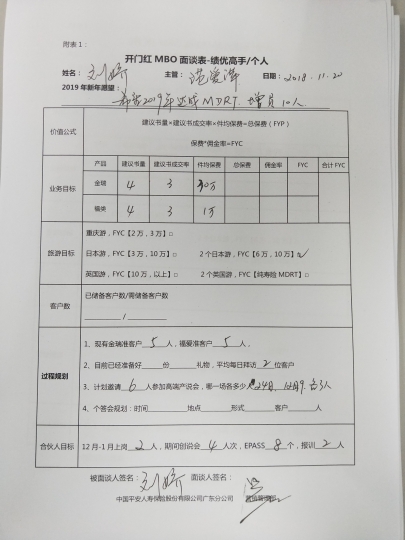 附表1：
开门红 MBO 面谈表-绩优高手/个人
姓名： 刘娇 主管： 范爱萍 日期： 2018.11.22
2019 年新年愿望：
希望2019年达成MDRT. 增员10人
价值公式 建议书量×建议书成交率×件均保费=总保费（FYP）
保费*佣金率=FYC
业务目标 产品 建议书量 建议书成交率 件均保费 总保费 佣金率 FYC 合计 FYC
金瑞 4 3 10万
福类 4 3 1万
旅游目标 重庆游，FYC【2 万，3 万】□
日本游，FYC【3 万，10 万】□ 2 个日本游，FYC【6 万，10 万】□✓
英国游，FYC【10 万，以上】□ 2 个英国游，FYC【纯寿险 MDRT】□
客户数 已储备客户数/需储备客户数
________ / ________
过程规划 1、现有金瑞准客户 5 人，福爱准客户 5 人，
2、目前已经准备好____份____礼物，平均每日拜访 2 位客户
3、计划邀请 6 人参加高端产说会，哪一场各多少人 24日, 12月9. 各3人
4、个答会规划：时间____地点____形式____客户____人
合伙人目标 12 月-1 月上岗 2 人，期间创说会 4 人次，EPASS 8 个，报训 2 人
被面谈人签名： 刘娇 面谈人签名：
中国平安人寿保险股份有限公司广东分公司